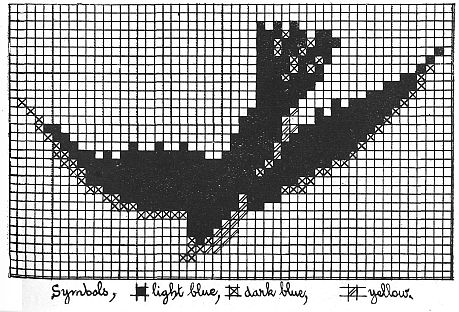 Symbols, light blue, dark blue, yellow.